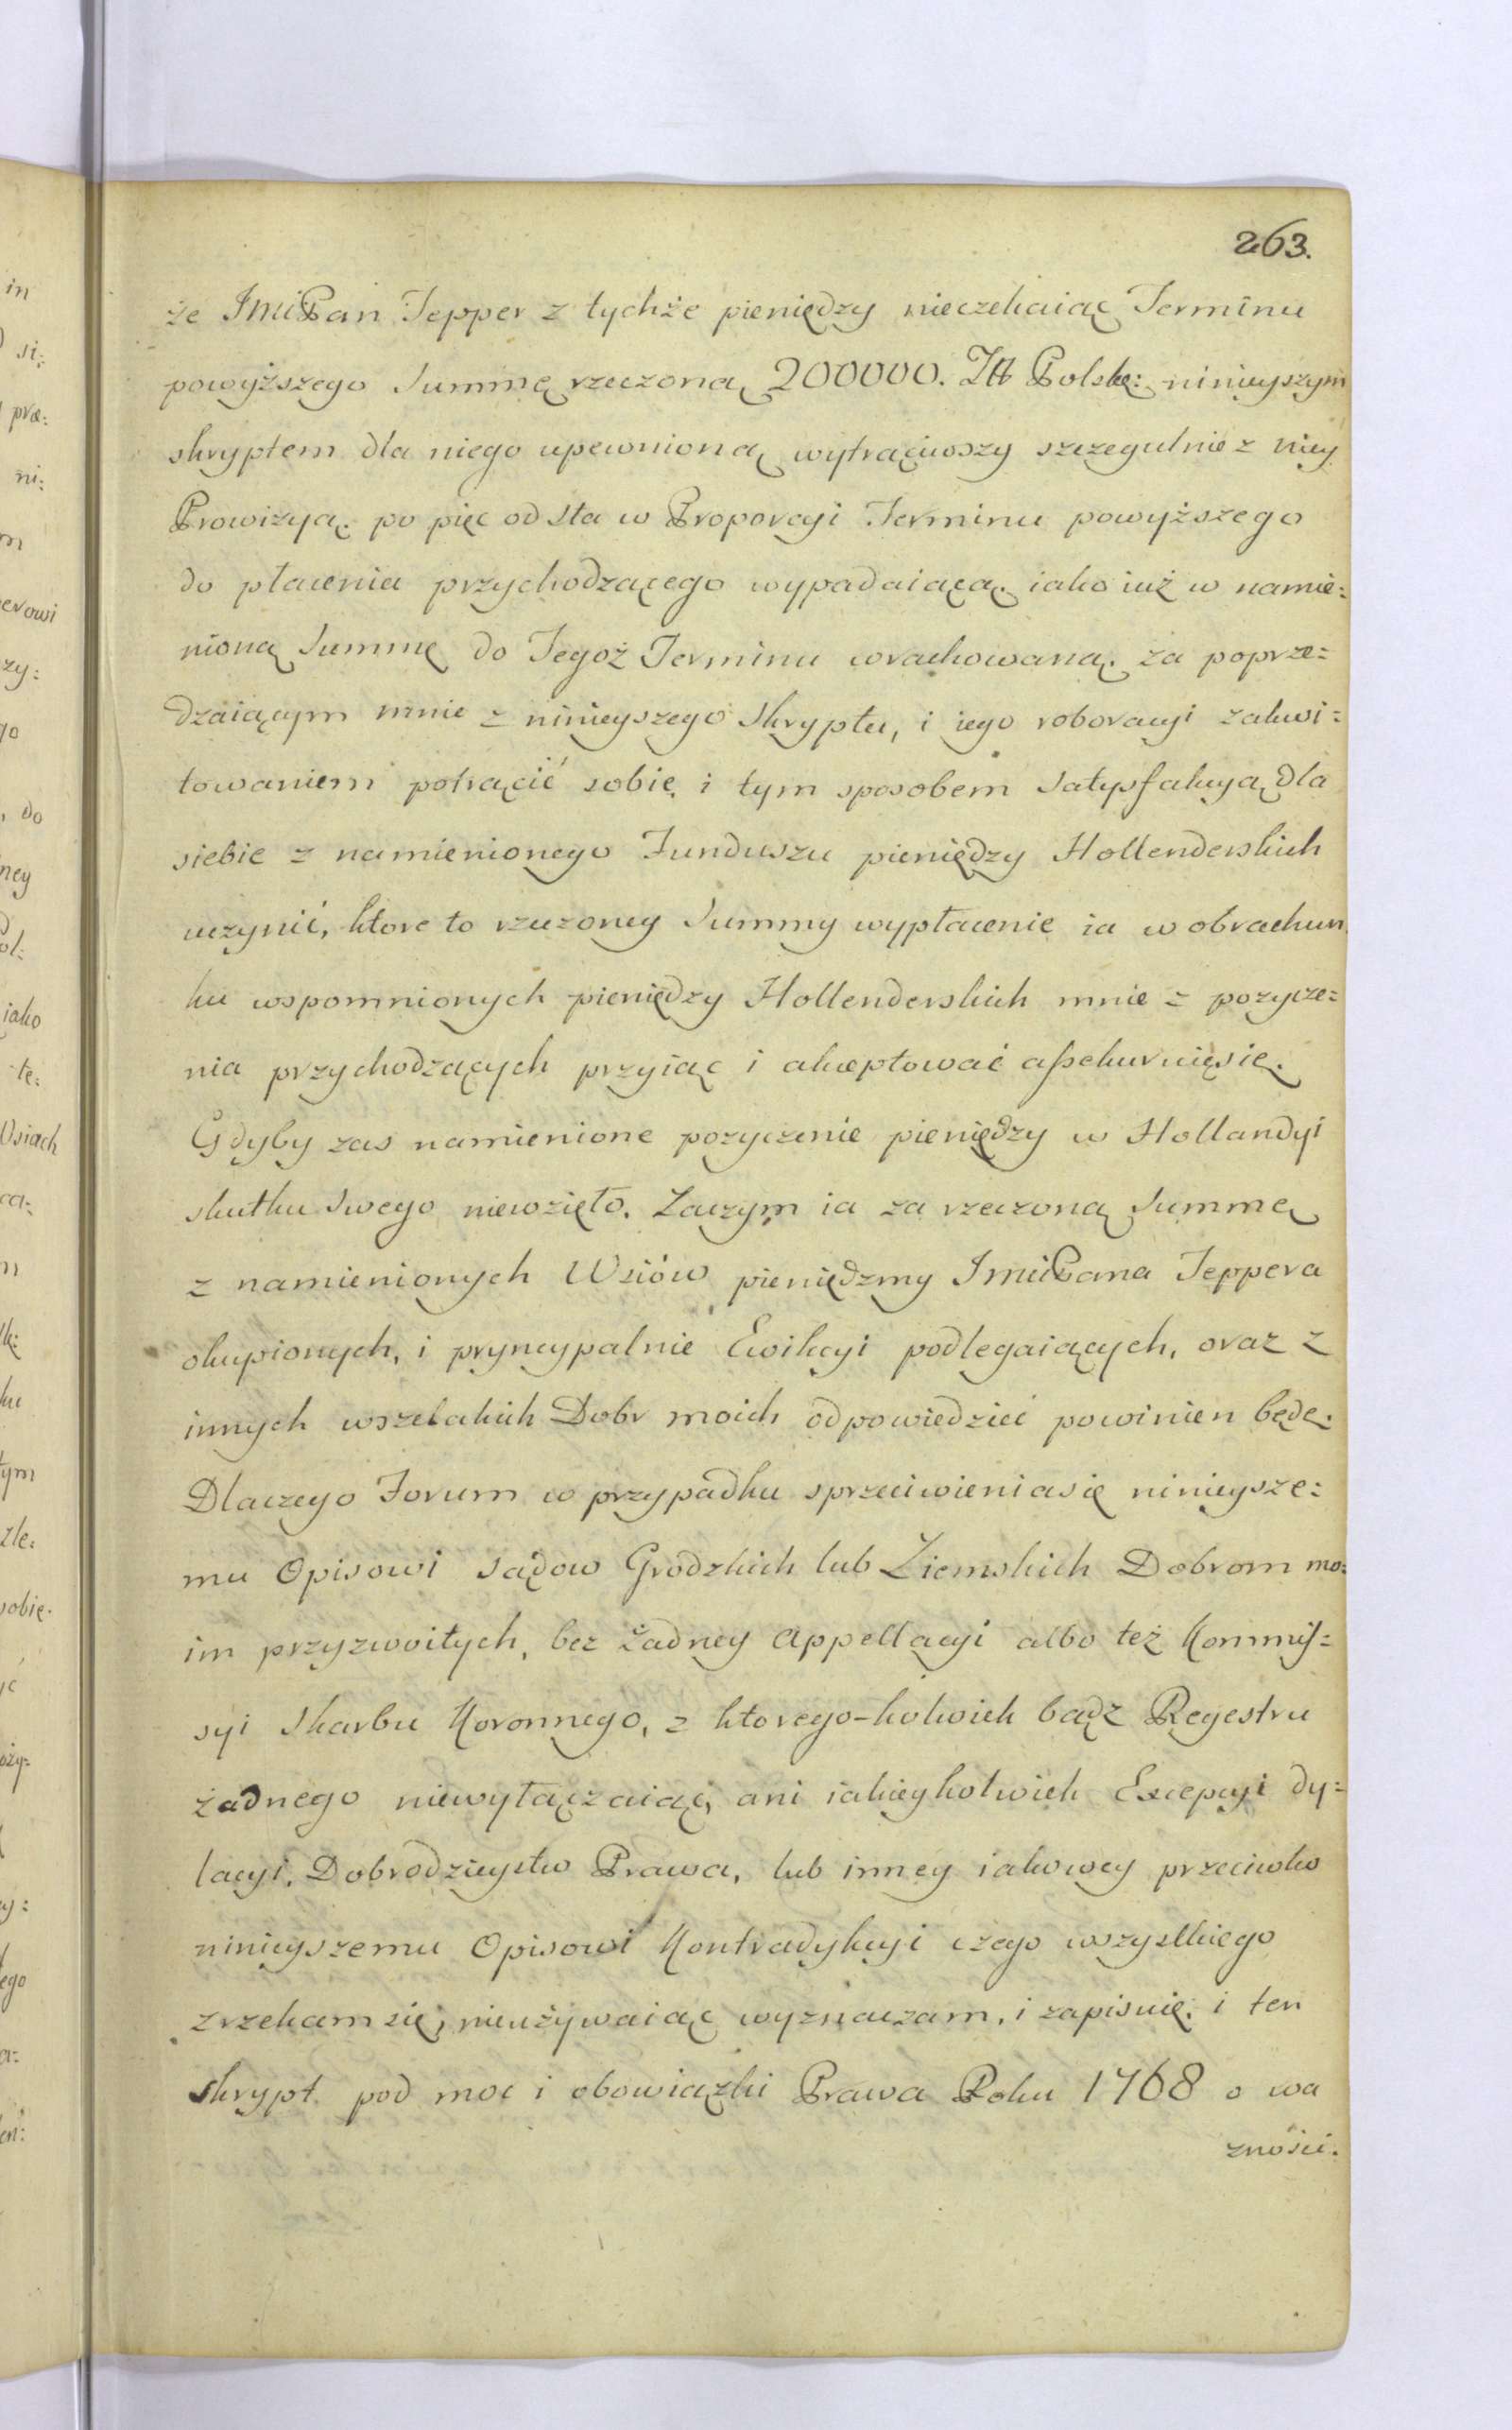 263.
że JmćPan Tepper z tychże pieniędzy nieczekaiąc Terminu
powyższego Summę rzeczoną 200000. Złł Polskę: ninieyszym
skryptem dla niego upewnioną wytrąciwszy szczegulnie z niey
Prowizyą. po pięc od sta w Proporcyi Terminu powyższego
do płacenia przychodzącego wypadaiącą. iako iuż w namie:
nioną Summę do Tegoż Terminu wrachowaną. za poprze=
dzaiącym mnie z ninieyszego Skryptu, i iego roboracyi zakwi=
towaniem potrącić sobie, i tym sposobem Satysfakcyą dla
siebie z namienionego Funduszu pieniędzy Hollenderskich
uczynić, ktore to rzeczoney Summy wypłacenie ia w obrachun
ku wspomnionych pieniędzy Hollenderskich mnie z pozycze=
nia przychodzących przyiąc i akceptować aßekuruięsię.
Gdyby zas namienione pozyczenie pieniędzy w Hollandyi
skutku Swego niewzięło. Zaczym ia za rzeczoną Summę
z namienionych Wsiów pieniędzmy JmćPana Teppera
okupionych, i pryncypalnie Ewikcyi podlegaiących, oraz z
innych wszelakich Dobr moich odpowiedzieć powinien będę.
Dlaczego Forum w przypadku sprzeciwieniasię ninieysze:
mu Opisowi Sądow Grodzkich lub Ziemskich Dobrom mo:
im przyzwoitych, bez żadney Appellacyi albo też Kommis=
syi Skarbu Koronnego, z ktorego-kolwiek bądz Regestru
żadnego niewyłączaiąc, ani iakieykolwiek Excepcyi dy=
lacyi, Dobrodzieystw Prawa, lub inney iakowey przeciwko
ninieyszemu Opisowi Kontradykcyi czego wszystkiego
zrzekam się, nieużywaiąc wyznaczam, i zapisuię. i ten
skrypt pod moc i obowiązki Prawa Roku 1768 o wa
żności.